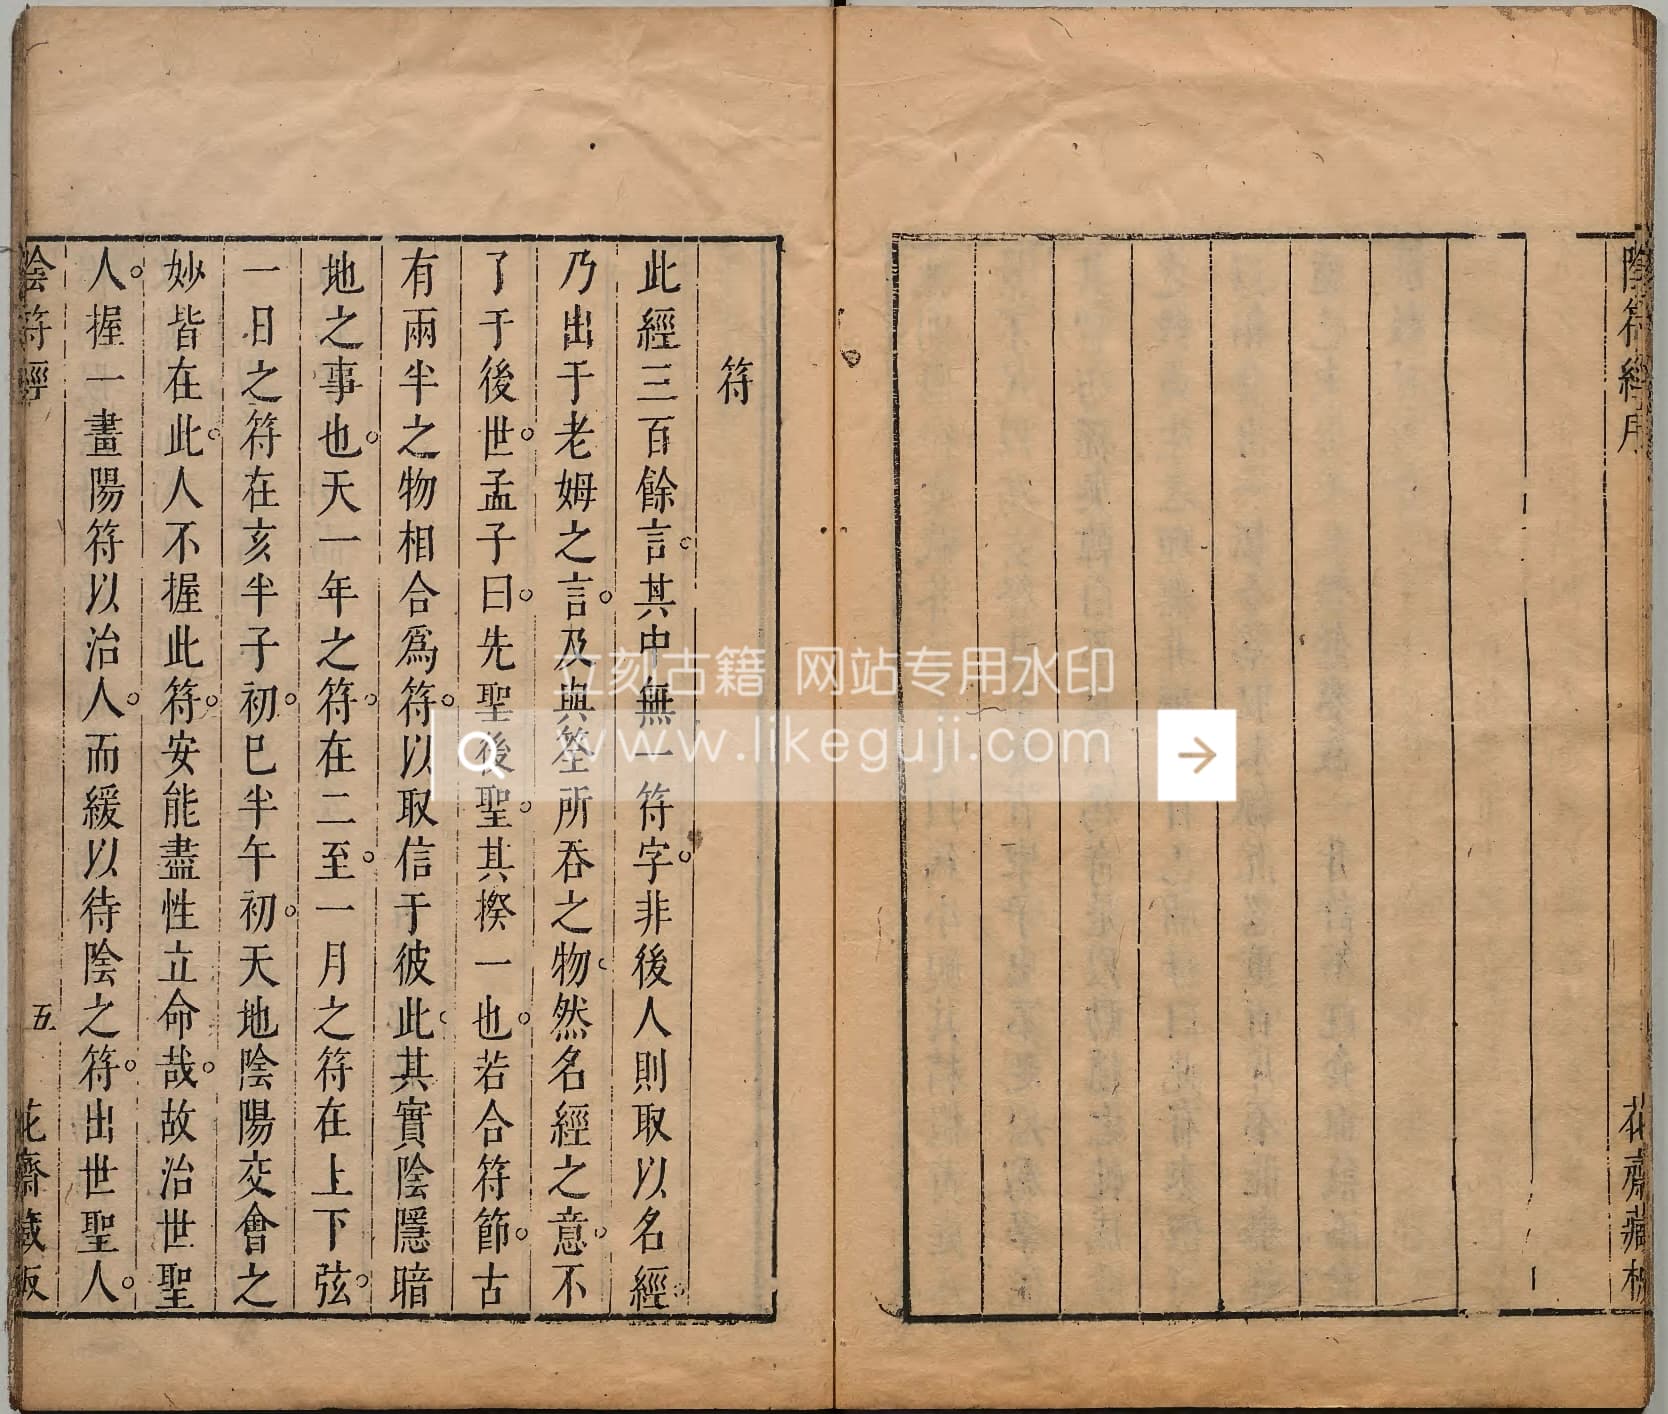 陰符經序
花齋藏板
符
此經三百餘言其中無一符字非後人則取以名經
乃出于老姆之言及與筌所吞之物然名經之意不
了于後世孟子曰先聖後聖其揆一也若合符節古
有兩半之物相合爲符以取信于彼此其實陰隱暗
地之事也天一年之符在二至一月之符在上下弦
一日之符在亥半子初巳半午初天地陰陽交會之
妙皆在此人不握此符安能盡性立命哉故治世聖
人握一畫陽符以治人而緩以待陰之符出世聖人
陰符經
五
花齋藏板
立刻古籍 网站专用水印
www.likeguji.com